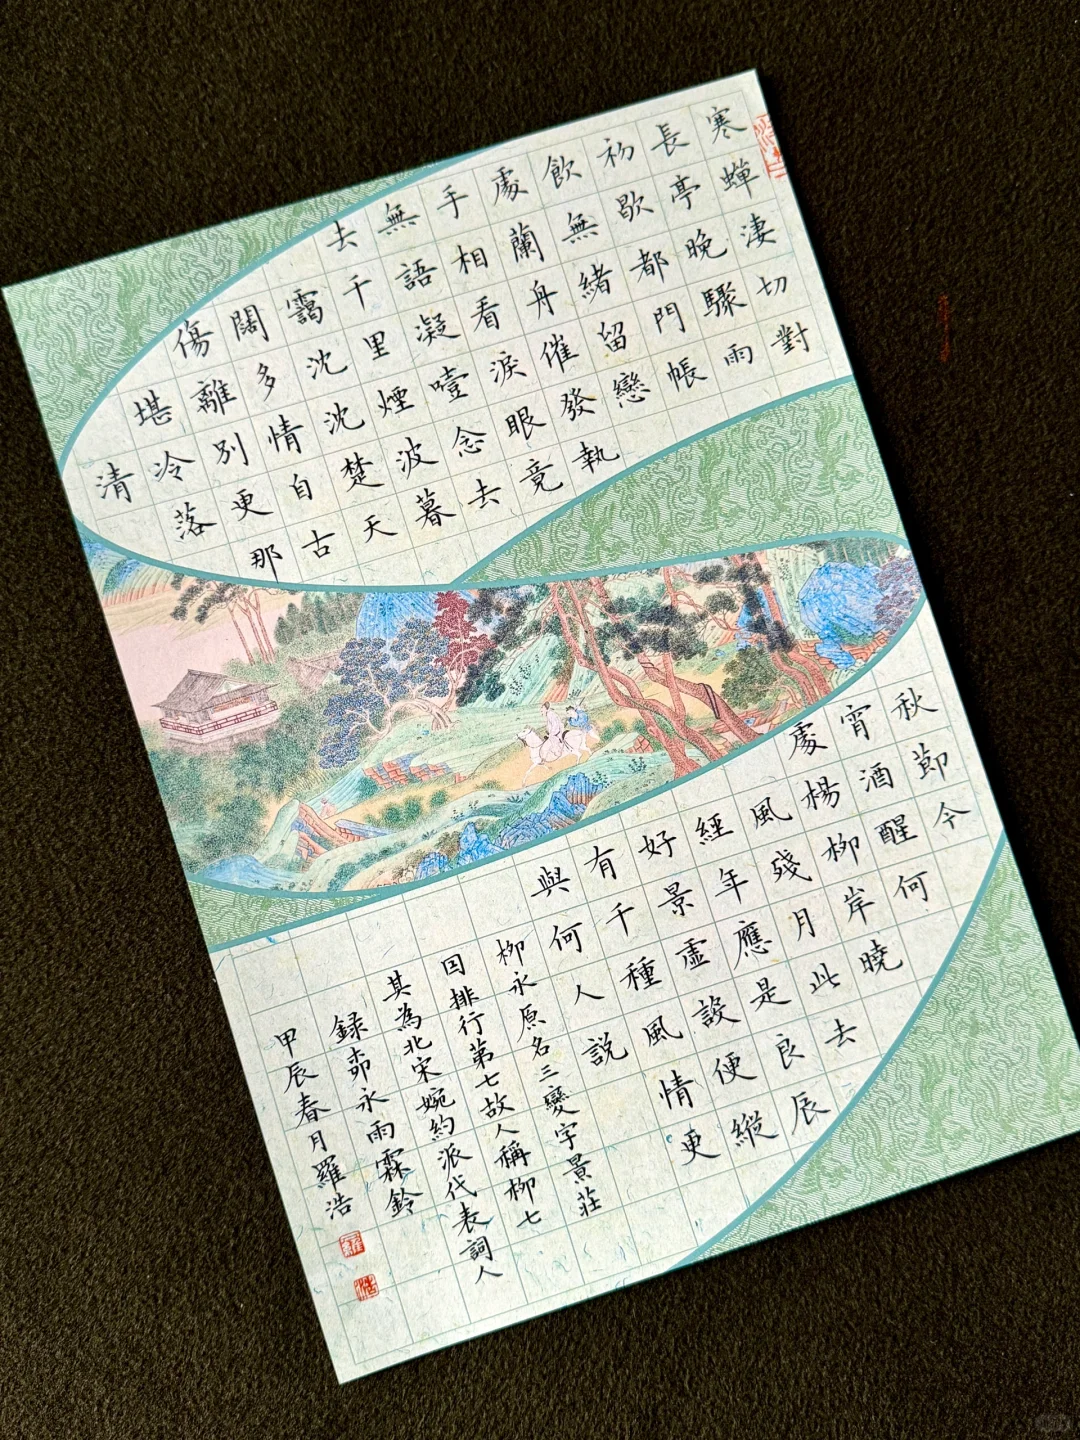 寒蟬淒切對
長亭晚驟雨
初歇都門帳
飲無緒留戀
處蘭舟催發執
手相看淚眼竟
無語凝噎念去
去千里煙波暮
靄沈沈楚天
闊多情自古
傷離別更那
堪冷落
清
秋節今
宵酒醒何
處楊柳岸曉
風殘月此去
經年應是良辰
好景虛設便縱
有千種風情更
與何人說
柳永原名三變字景莊
因排行第七故人稱柳七
其為北宋婉約派代表詞人
録柳永雨霖鈴
甲辰春月羅浩
羅
浩